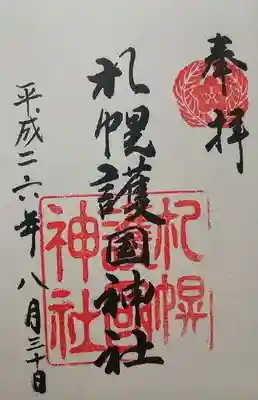 奉拝
札幌護国神社
札幌
護国
神社
平成二六年八月三十日